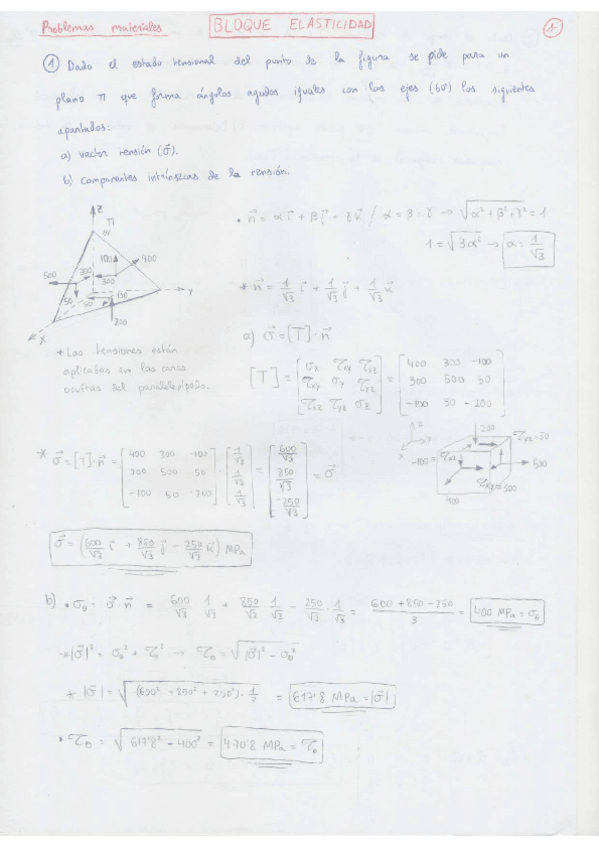 Problemas materiales
BLOQUE ELASTICIDAD
1
① Dado el estado tensional del punto de la figura se pide para un
plano π que forma ángulos agudos iguales con los ejes (60º) los siguientes
apartados:
a) vector tensión (σ⃗).
b) componentes intrínsecas de la tensión.
Z
π
100
400
500
300
300
50
50
Y
200
X
* Las tensiones están
aplicadas en las caras
ocultas del paralelepípedo.
• n⃗ = α i⃗ + β j⃗ + γ k⃗ / α = β = γ → √(α² + β² + γ²) = 1
1 = √(3α²) → α = 1/√3
* n⃗ = 1/√3 i⃗ + 1/√3 j⃗ + 1/√3 k⃗
a) σ⃗ = [T] · n⃗
[T] = [σx τxy τxz; τxy σy τyz; τxz τyz σz] = [400 300 -100; 300 500 50; -100 50 -200]
200
τyz = 50
-100 = τxz
500
τxy = 300
400
* σ⃗ = [T] · n⃗ = [400 300 -100; 300 500 50; -100 50 -200] · [1/√3; 1/√3; 1/√3] = [600/√3; 850/√3; -250/√3] = σ⃗
σ⃗ = (600/√3 i⃗ + 850/√3 j⃗ - 250/√3 k⃗) MPa
b) • σθ = σ⃗ · n⃗ = 600/√3 · 1/√3 + 850/√3 · 1/√3 - 250/√3 · 1/√3 = (600 + 850 - 250)/3 = 400 MPa = σθ
* |σ⃗|² = σθ² + τθ² → τθ = √(|σ⃗|² - σθ²)
* |σ⃗| = √((600² + 850² + 250²) · 1/3) = 617'8 MPa = |σ⃗|
* τθ = √(617'8² - 400²) = 470'8 MPa = τθ